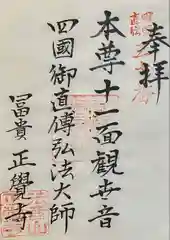 奉拝
本尊十一面觀世音
四國御直傳弘法大師
冨貴 正覺寺